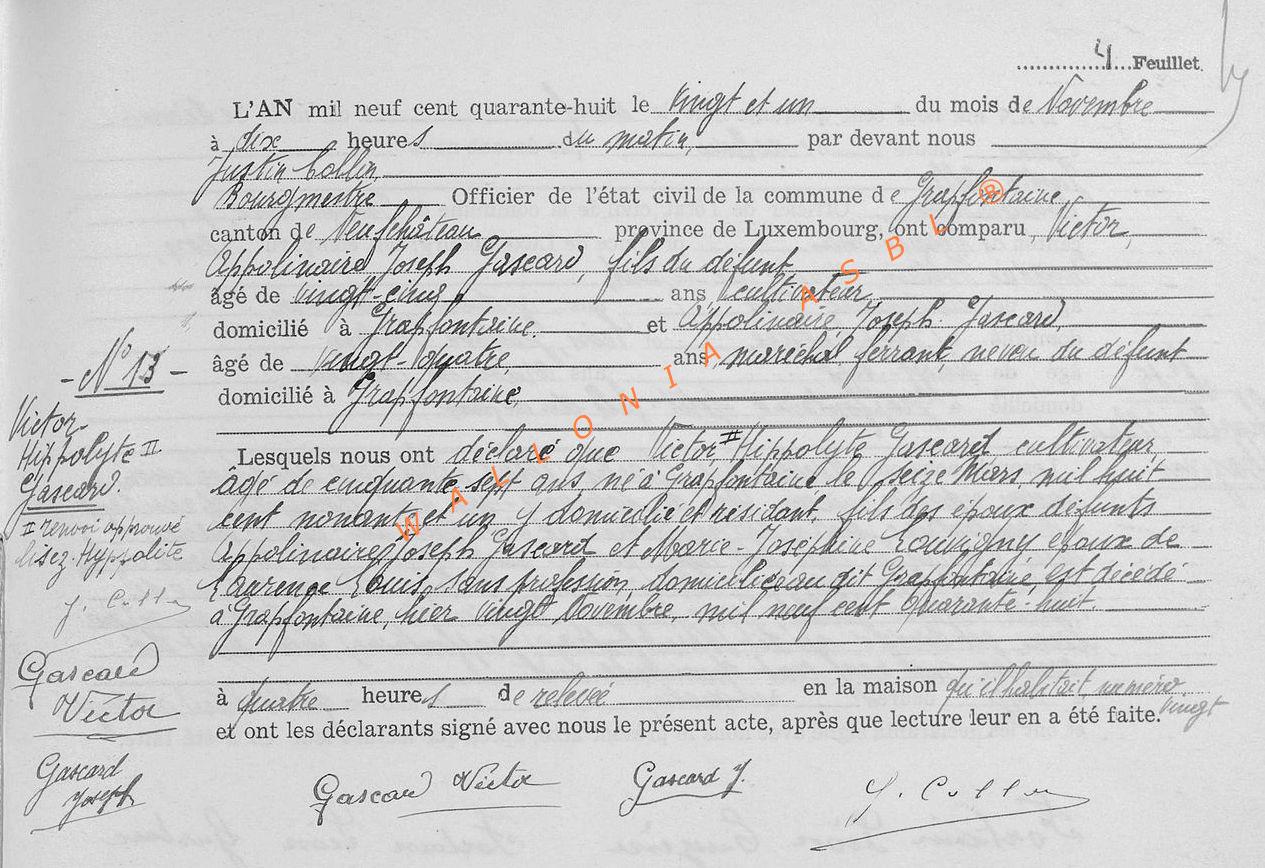 4 Feuillet
L'AN mil neuf cent quarante-huit le vingt et un du mois de Novembre
à dix heures du matin, par devant nous
Justin Collin,
Bourgmestre Officier de l'état civil de la commune de Grapfontaine,
canton de Neufchâteau province de Luxembourg, ont comparu Victor,
Appolinaire Joseph Gascard, fils du défunt
âgé de vingt-cinq ans cultivateur
domicilié à Grapfontaine et Appolinaire, Joseph Gascard,
âgé de vingt-quatre, ans, maréchal ferrant, neveu du défunt
domicilié à Grapfontaine,
Lesquels nous ont déclaré que Victor II Hippolyte Gascard cultivateur,
âgé de cinquante sept ans, né à Grapfontaine le seize Mars mil huit
cent nonante et un y domicilié et résidant, fils des époux défunts
Appolinaire Joseph Gascard et Marie-Joséphine Louvigny époux de
Laurence Louis, sans profession, domiciliée au dit Grapfontaine, est décédé
à Grapfontaine, hier vingt Novembre, mil neuf cent quarante-huit.
à quatre heures de relevée en la maison qu'il habitait numéro
vingt
et ont les déclarants signé avec nous le présent acte, après que lecture leur en a été faite.
- N° 13 -
Victor-
Hippolyte II
Gascard.
II renvoi approuvé
lisez: Hyppolite
J. Collin
Gascard
Victor
Gascard
Joseph
Gascard Victor
Gascard J.
J. Collin
WALLONIA ASBL ®